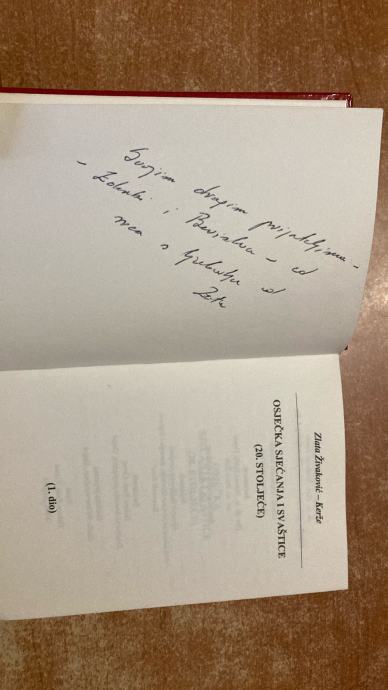 Svojim dragim prijateljima -
- Zdenki i Branislavu - od
s ljubavlju od
Zlate
Zlata Živaković – Kerže
OSJEČKA SJEĆANJA I SVAŠTICE
(20. STOLJEĆE)
(1. dio)